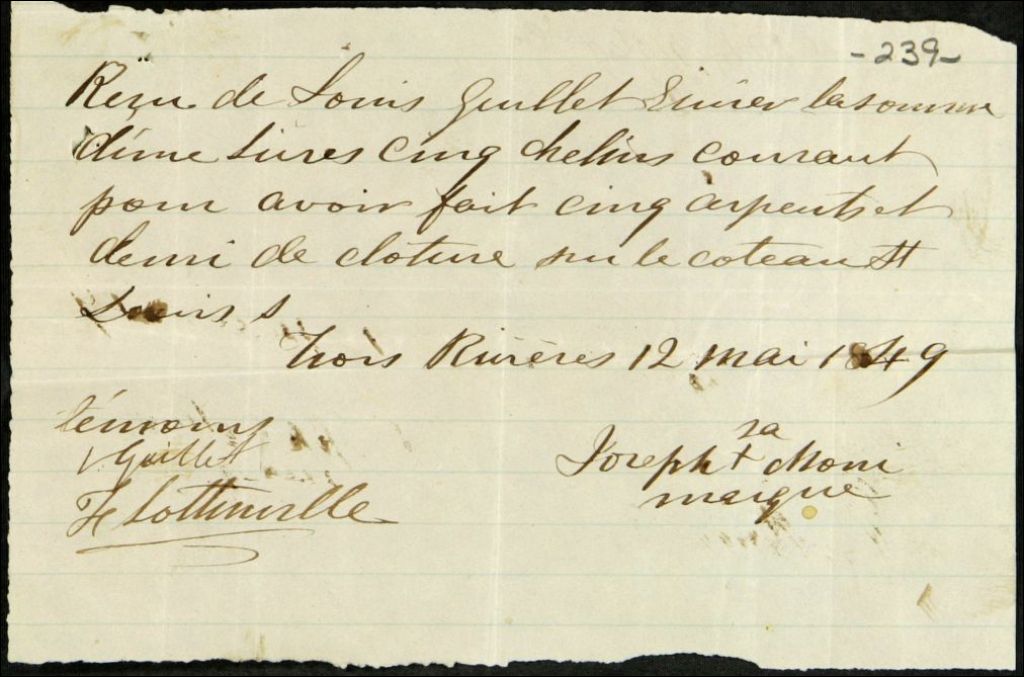 -239-
Reçu de Louis Guillet Ecuier la somme
d'une Livres cinq chelins courant
pour avoir fait cinq arpents et
demi de cloture sur le coteau St
Louis
Trois Rivières 12 mai 1849
témoins
Guillet
Lottinville
sa
Joseph + Moni
marque